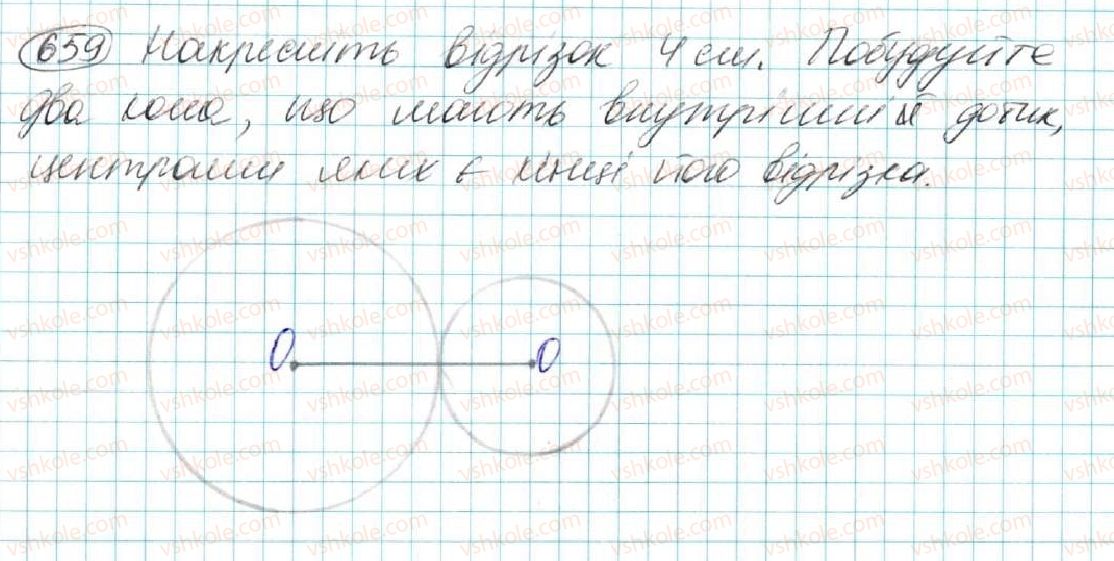 659 Накресліть відрізок 4 см. Побудуйте
два кола, що мають внутрішній дотик,
центрами яких є кінці того відрізка.
O O
vshkole.com